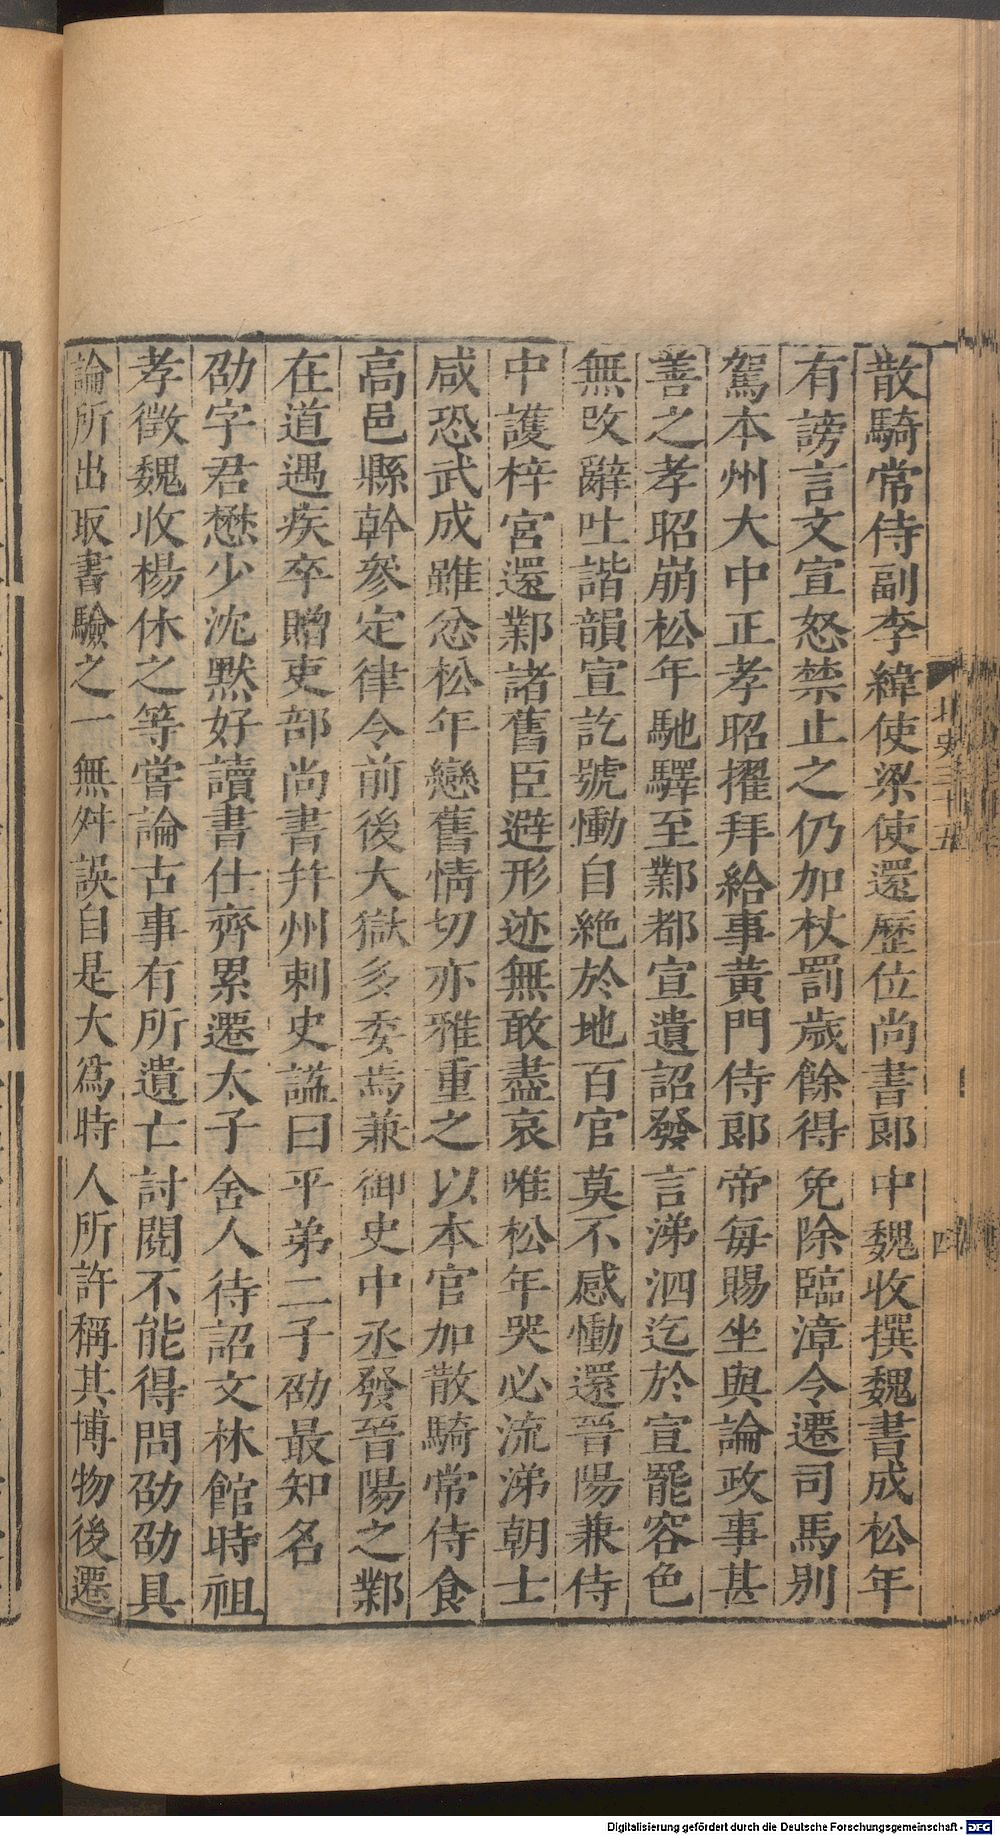 散騎常侍副李緯使梁使還歷位尚書郎中魏收撰魏書成松年
有謗言文宣怒禁止之仍加杖罰歲餘得免除臨漳令遷司馬別
駕本州大中正孝昭擢拜給事黃門侍郎帝每賜坐與論政事甚
善之孝昭崩松年馳驛至鄴都宣遺詔發言涕泗迄於宣罷容色
無改辭吐諧韻宣訖號慟自絶於地百官莫不感慟還晉陽兼侍
中護梓宮還鄴諸舊臣避形迹無敢盡哀唯松年哭必流涕朝士
咸恐武成雖忿松年戀舊情切亦雅重之以本官加散騎常侍食
高邑縣幹參定律令前後大獄多委焉兼御史中丞發晉陽之鄴
在道遇疾卒贈吏部尚書幷州刺史諡曰平弟二子劭最知名
劭字君懋少沈默好讀書仕齊累遷太子舍人待詔文林館時祖
孝徵魏收楊休之等嘗論古事有所遺亡討閱不能得問劭劭具
論所出取書驗之一無舛誤自是大爲時人所許稱其博物後遷
北史三十五
四
Digitalisierung gefördert durch die Deutsche Forschungsgemeinschaft - DFG